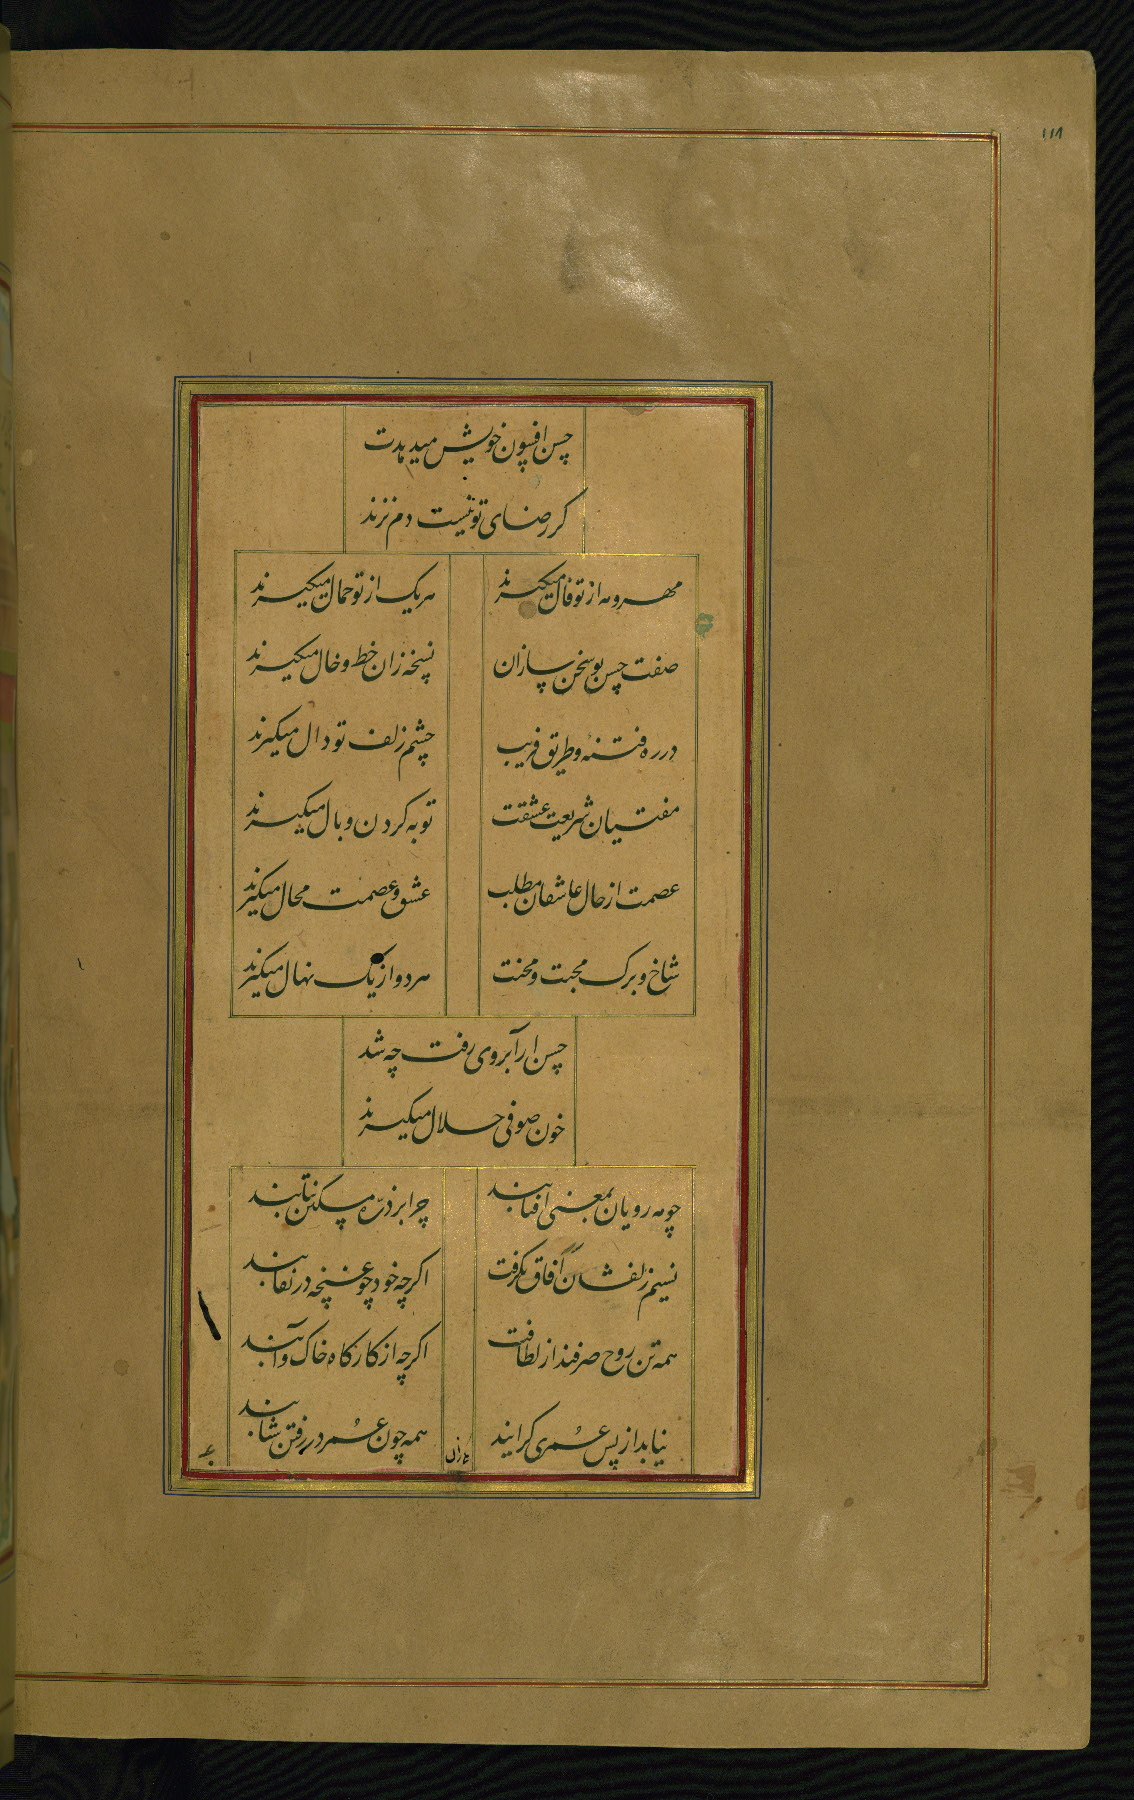 ۱۱۸
حسن افسون خویش میدهدت
کر رضای تو نیست دم نزند
مهر و مه از تو فال میکیرند
هر یک از تو جمال میکیرند
صفت حسن تو سخن سازان
نسخه زان خط و خال میکیرند
در ره فتنه و طریق فریب
چشم زلف تو دال میکیرند
مفتیان شریعت عشقت
توبه کردن وبال میکیرند
عصمت از حال عاشقان مطلب
عشق و عصمت محال میکیرند
شاخ و برک محبت و محنت
هر دو از یک نهال میکیرند
حسن ار آبروی رفت چه شد
خون صوفی حلال میکیرند
چو مه رویان بمعنی آفتابند
چرا بر ذره مسکین نتابند
نسیم زلفشان آفاق بکرفت
اکرچه خود چو غنچه در نقابند
همه تن روح صرفند از لطافت
اکرچه از کارکاه خاک و آبند
نیابد از پس عمری کرایند
همه چون عمر در رفتن شتابند